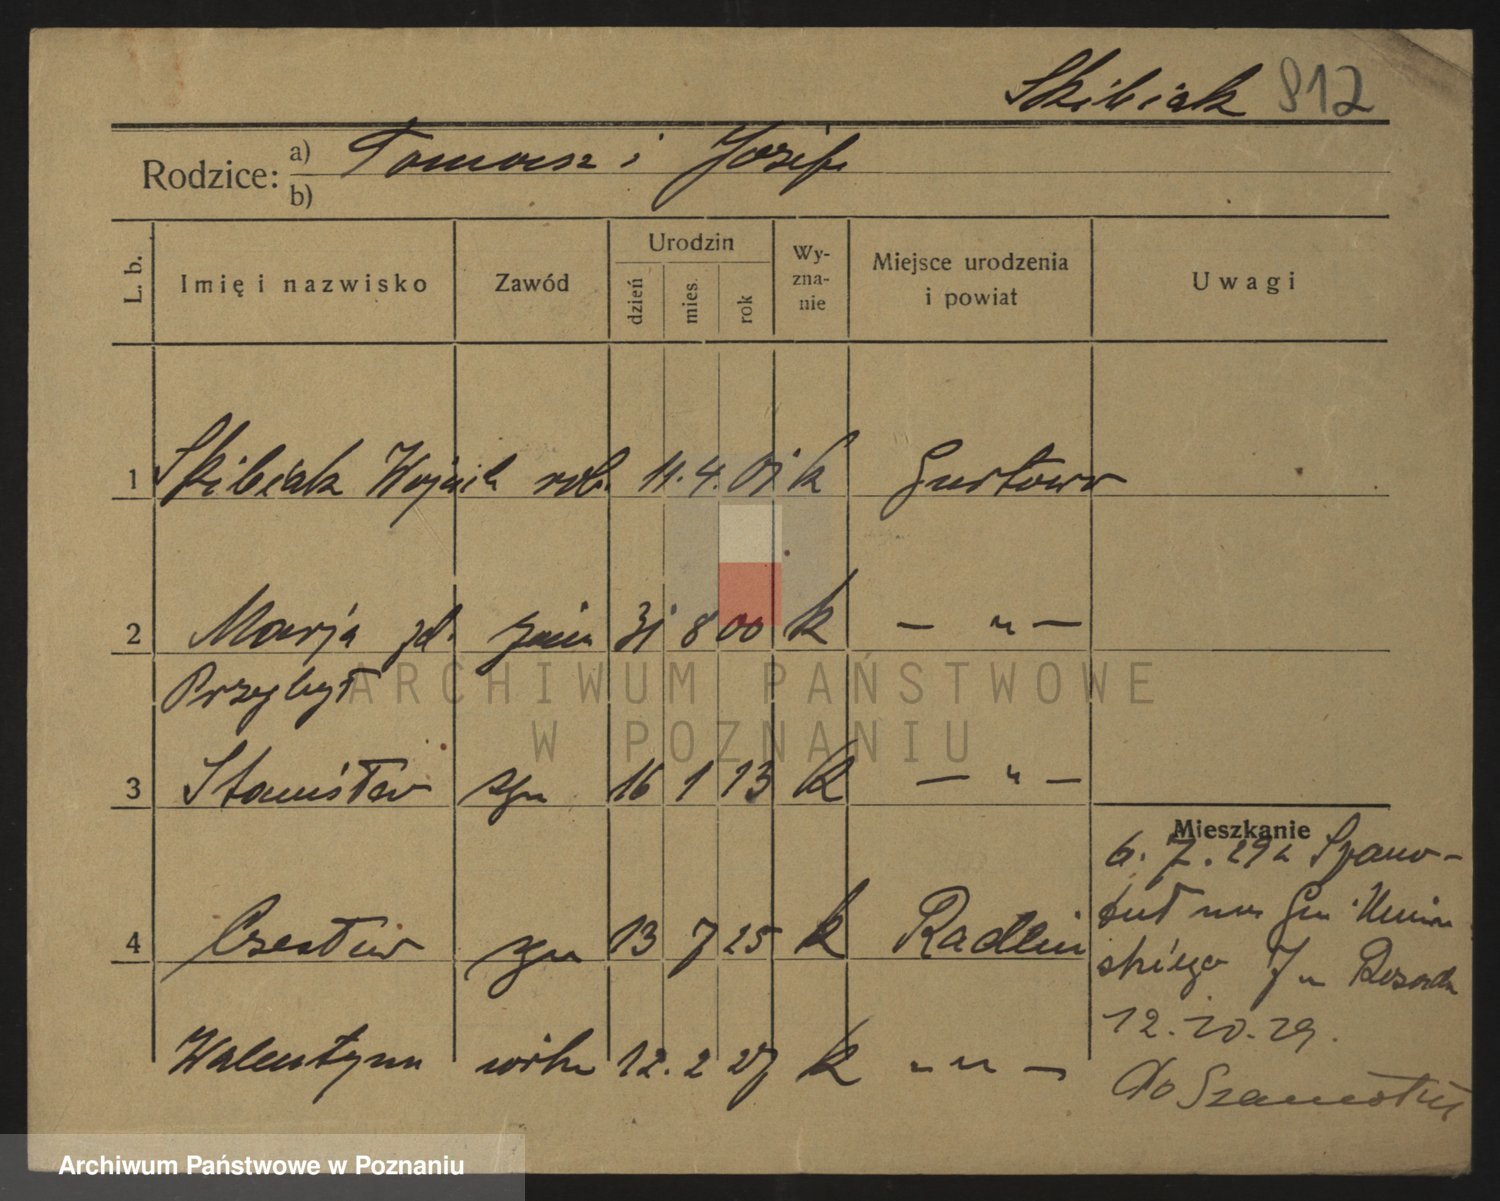 Skibiak 812
Rodzice: a) Tomasz i Józefa
b)
L. b. Imię i nazwisko Zawód Urodzin dzień mies. rok Wyznanie Miejsce urodzenia i powiat Uwagi
1 Skibiak Wojciech rob. 11. 4. 01 k
2 Marja żona 31 8 00 k — " —
Przybył
3 Stanisław syn 16 1 23 k — " —
Mieszkanie
6. 7. 29 z Szamo-
4 Czesław syn 13 7 25 k Radlin
skiego
12. 10. 29.
Walentyna córka 12. 2 27 k — " —
do Szamotuł
ARCHIWUM PAŃSTWOWE
W POZNANIU
Archiwum Państwowe w Poznaniu